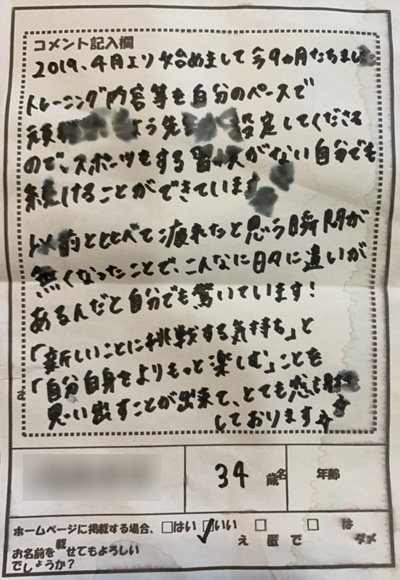 コメント記入欄
2019.4月より始めまして今9ヶ月たちまし
トレーニング内容等も自分のペースで
頑 よう先 設定してくださる
ので、スポーツをする がない自分でも
続けることができています
以前と比べて疲れたと思う瞬間が
無くなったことで、こんなに日々に違いが
あるんだと自分でも驚いています!
「新しいことに挑戦する気持ち」と
「自分自身をよりもっと楽しむ」ことを
思い出すことが出来て、とても感
しております
34 歳 名 年齢
ホームページに掲載する場合、□はい ☑いい □ □ は
お名前を載せてもよろしい え 匿 で ダメ
でしょうか?